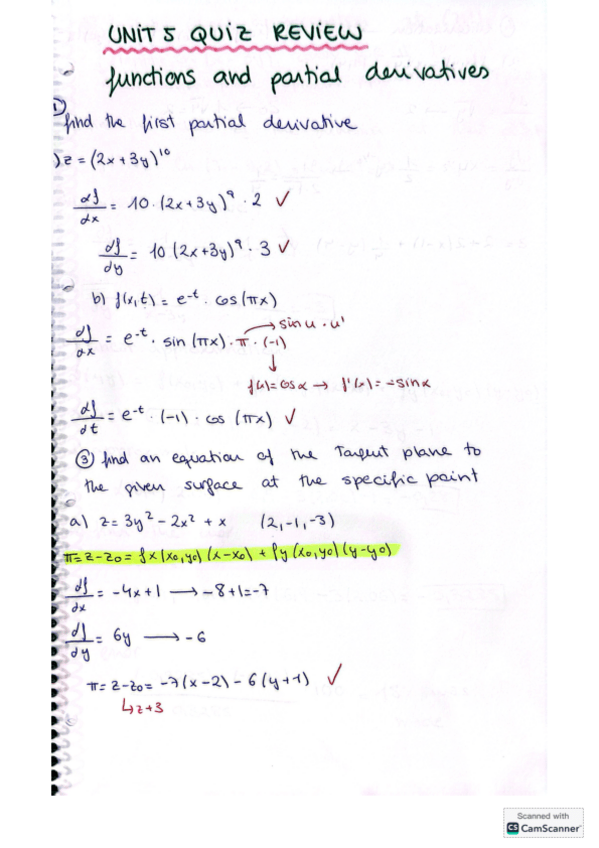 UNIT 5 QUIZ REVIEW
functions and partial derivatives
① find the first partial derivative
) z = (2x+3y)¹⁰
df/dx = 10·(2x+3y)⁹·2 ✓
df/dy = 10(2x+3y)⁹·3 ✓
b) f(x,t) = e⁻ᵗ · cos(πx)
→ sin u · u'
df/dx = e⁻ᵗ · sin(πx) · π · (-1)
↓
f(x) = cos x → f'(x) = -sin x
df/dt = e⁻ᵗ · (-1) · cos(πx) ✓
③ find an equation of the Tangent plane to
the given surface at the specific point
a) z = 3y² - 2x² + x (2,-1,-3)
π = z-z0 = fx(x0,y0)(x-x0) + fy(x0,y0)(y-y0)
df/dx = -4x+1 → -8+1=-7
df/dy = 6y → -6
π = z-z0 = -7(x-2) - 6(y+1) ✓
↳ z+3
Scanned with
CS CamScanner